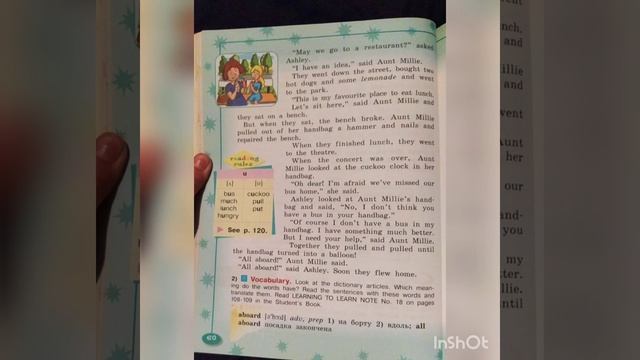 "May we go to a restaurant?" asked
Ashley.
"I have an idea," said Aunt Millie.
They went down the street, bought two
hot dogs and some lemonade and went
to the park.
"This is my favourite place to eat lunch.
Let's sit here," said Aunt Millie and
they sat on a bench.
But when they sat, the bench broke. Aunt Millie
pulled out of her handbag a hammer and nails and
repaired the bench.
When they finished lunch, they went
to the theatre.
When the concert was over, Aunt
Millie looked at the cuckoo clock in her
handbag.
"Oh dear! I'm afraid we've missed our
bus home," she said.
Ashley looked at Aunt Millie's hand-
bag and said, "No, I don't think you
have a bus in your handbag."
"Of course I don't have a bus in my
handbag. I have something much better.
But I need your help," said Aunt Millie.
Together they pulled and pulled until
the handbag turned into a balloon!
"All aboard!" Aunt Millie said.
"All aboard!" said Ashley. Soon they flew home.
reading
rules
u
[ʌ] [ʊ]
bus cuckoo
much pull
lunch put
hungry
See p. 120.
2) Vocabulary. Look at the dictionary articles. Which mean-
ing do the words have? Read the sentences with these words and
translate them. Read LEARNING TO LEARN NOTE No. 18 on pages
108-109 in the Student's Book.
aboard [ə'bɔːd] adv, prep 1) на борту 2) вдоль; all
aboard посадка закончена
60
InShOt